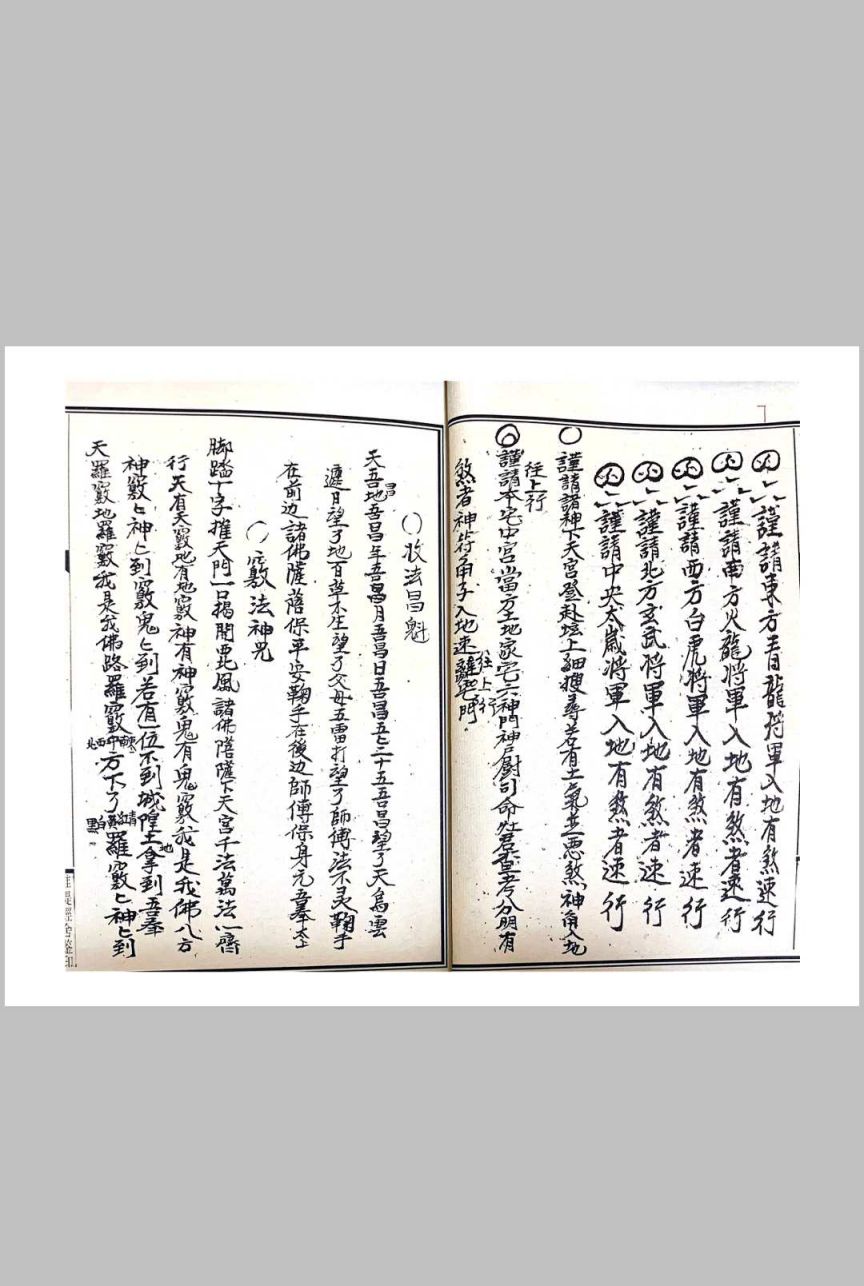 謹請東方青龍将軍入地有煞速行
謹請南方火龍将軍入地有煞者速行
謹請西方白虎将軍入地有煞者速行
謹請北方玄武将軍入地有煞者速行
謹請中央太歲将軍入地有煞者速行
謹請諸神下天宮登赴坛上細搜尋若有土氣並惡煞神角入地
往上行
謹請本宅中宮當方土地家宅六神門神戶尉司命灶君查考分明有
煞者神符角子入地速離宅門
往上行
收法昌魁
天吾地吾昌年吾昌月吾昌日吾昌五七二十五吾昌望了天烏雲
昌
遮日望了地百草不生望了父母五雷打望了師傅法不灵鞠手
在前边諸佛薩落保平安鞠手在後边師傅保身元吾奉太上
竅法神咒
脚踏丁字推天門一口揭開毘風諸佛菩薩下天宮千法萬法一齊
行天有天竅地有地竅神有神竅鬼有鬼竅我是我佛八方
神竅七神七到竅鬼七到若有一位不到城隍土拿到吾奉
地
天羅竅地羅竅我是我佛路羅竅方下了羅竅七神七到
東南中西北
青紅黄白黑